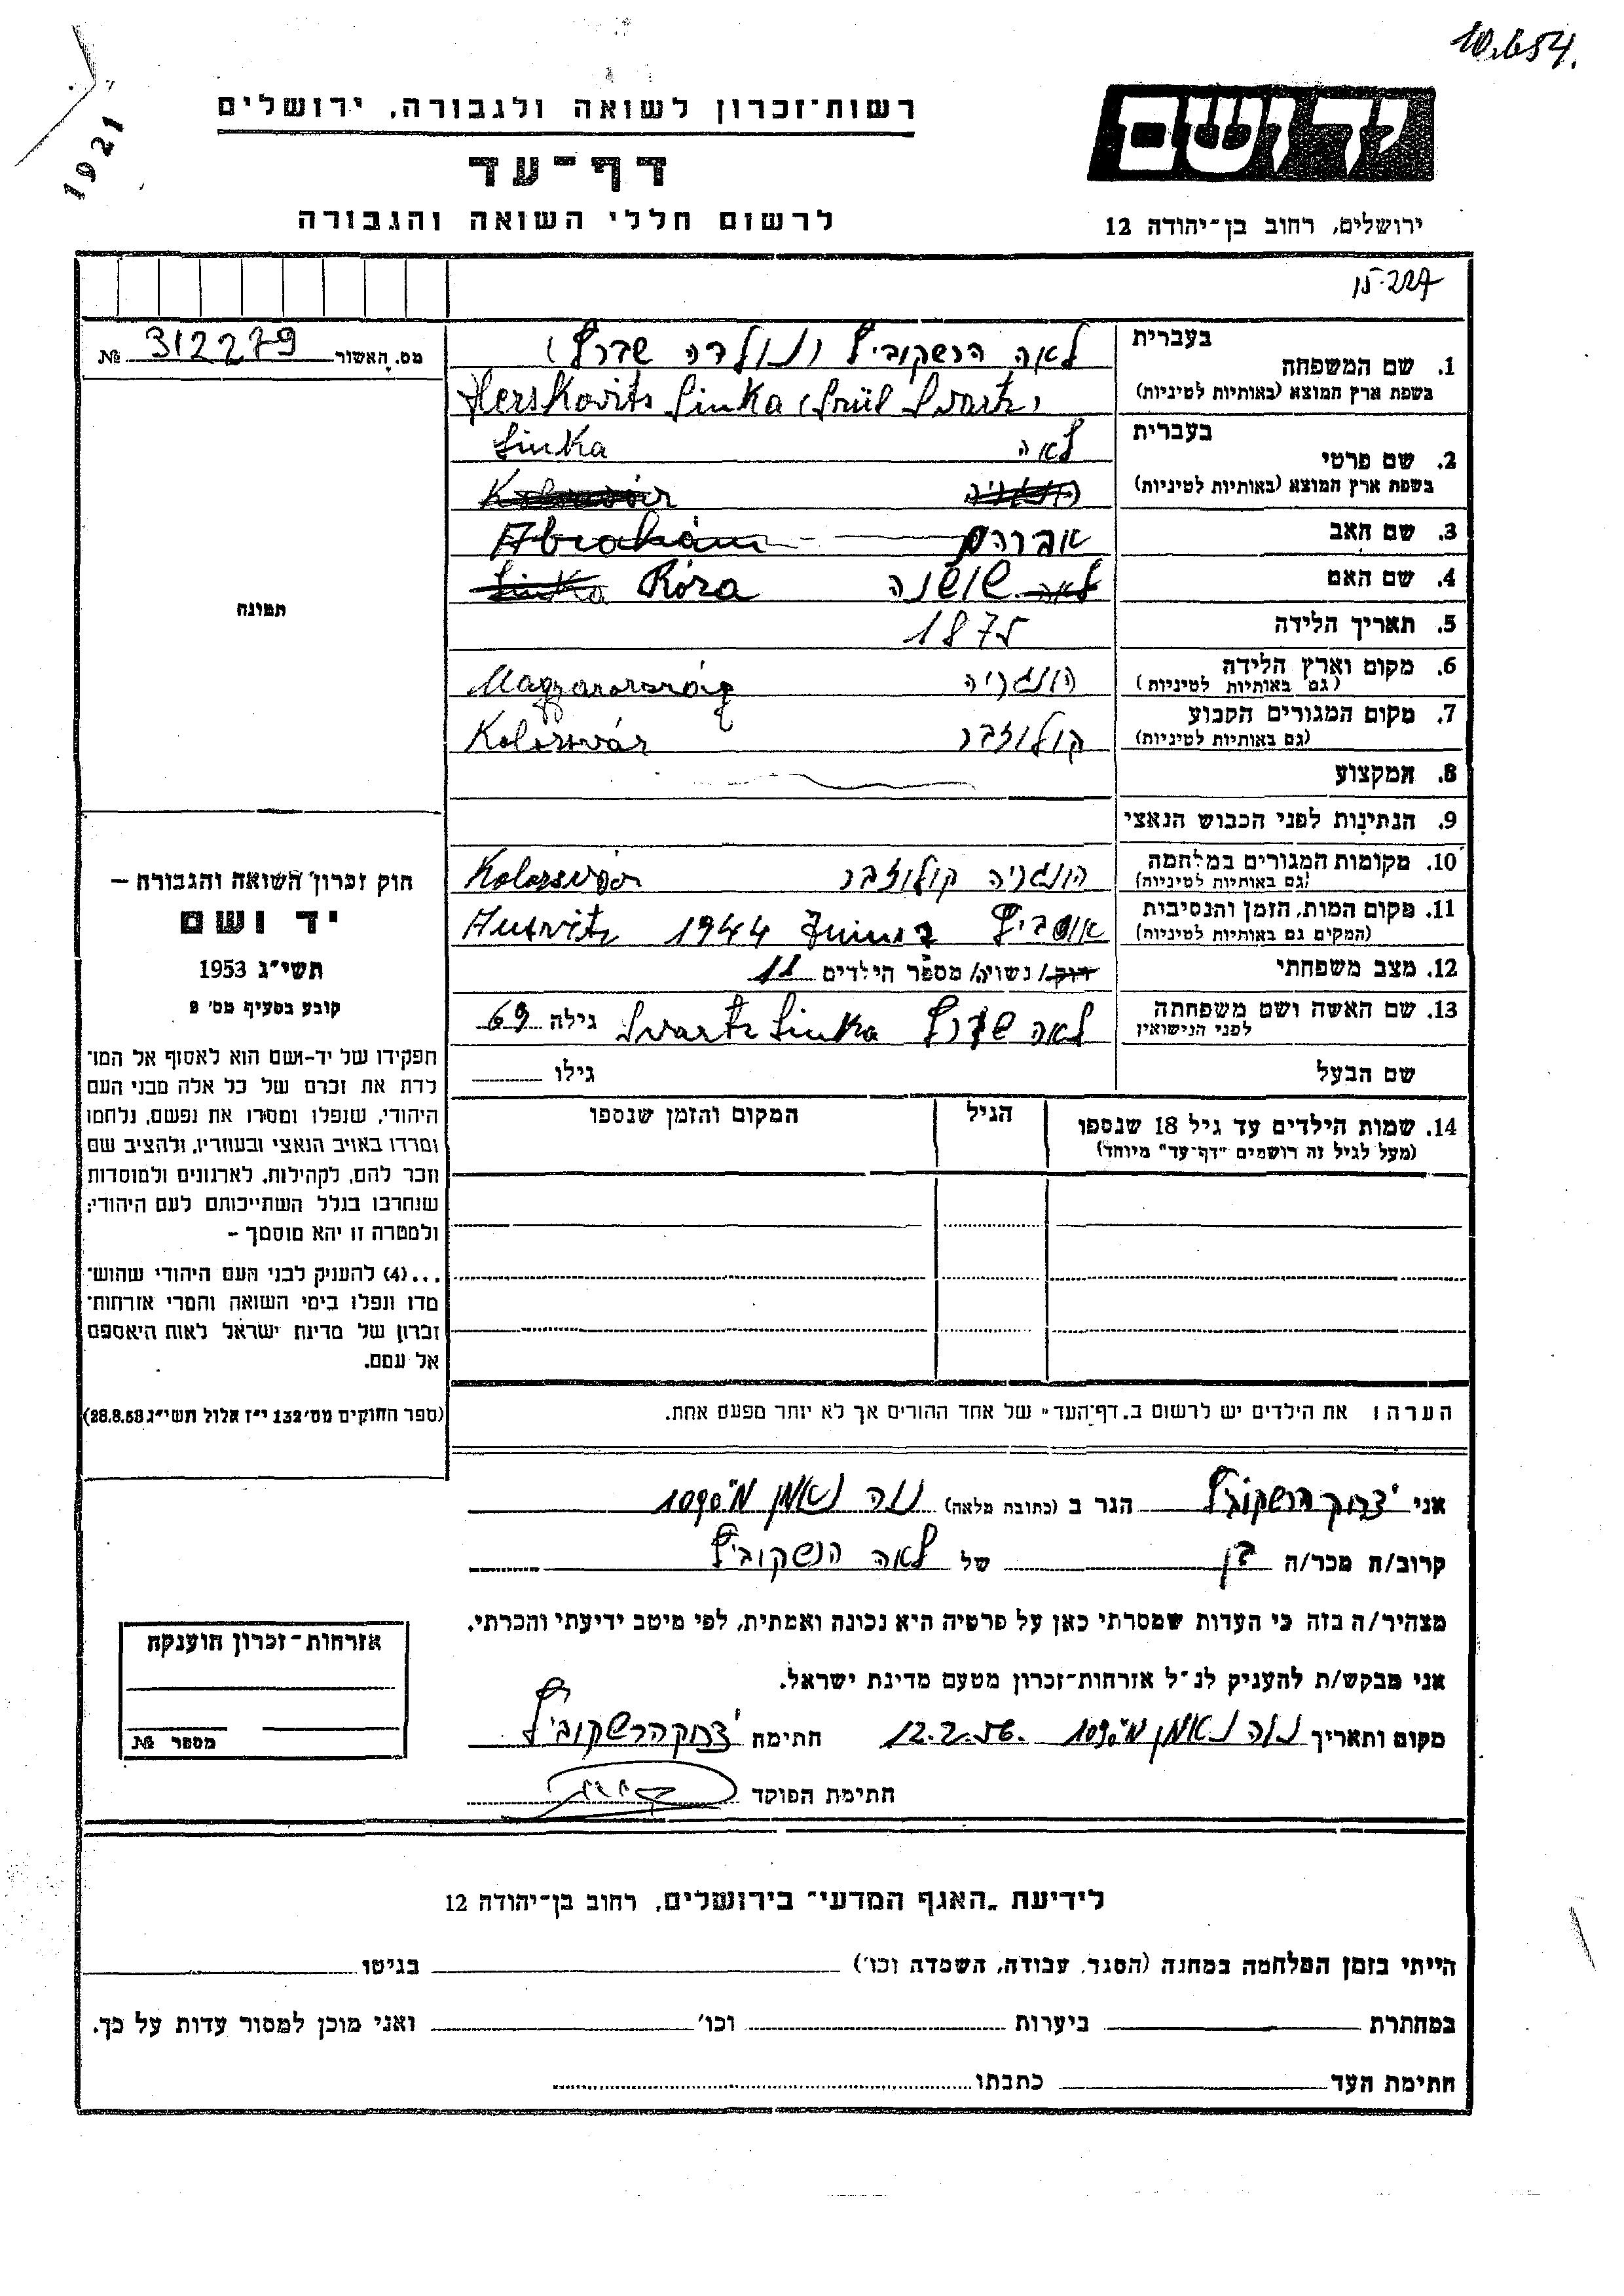 10.654.
1921
רשות־זכרון לשואה ולגבורה, ירושלים
דף־עד
לרשום חללי השואה והגבורה
יד ושם
ירושלים, רחוב בן־יהודה 12
15-227
מס. האשור 312279 №
תמונה
1. שם המשפחה
בעברית
לאה הרשקוביץ (נולדה שורץ)
בשפת ארץ המוצא (באותיות לטיניות)
Herskovits Linka (Szül Svartz)
2. שם פרטי
בעברית
לאה Linka
בשפת ארץ המוצא (באותיות לטיניות)
3. שם האב אברהם Abrahám
4. שם האם לאה שושנה Linka Róza
5. תאריך הלידה 1875
6. מקום וארץ הלידה הונגריה Magyarország
(גם באותיות לטיניות)
7. מקום המגורים הקבוע קולוזבר Kolozsvár
(גם באותיות לטיניות)
8. המקצוע
9. הנתינות לפני הכבוש הנאצי
10. מקומות המגורים במלחמה הונגריה קולוזבר Kolozsvár
(גם באותיות לטיניות)
11. מקום המות, הזמן והנסיבות אושביץ 7 Junius 1944 Ausvitz
(המקום גם באותיות לטיניות)
12. מצב משפחתי רוק/ נשוי/ה מספר הילדים 11
13. שם האשה ושם משפחתה לאה שורץ Svartz Linka גילה 69
לפני הנישואין
שם הבעל גילו
14. שמות הילדים עד גיל 18 שנספו
(מעל לגיל זה רושמים "דף־עד" מיוחד)
הגיל
המקום והזמן שנספו
הערה: את הילדים יש לרשום ב„דף־העד" של אחד ההורים אך לא יותר מפעם אחת.
חוק זכרון השואה והגבורה —
יד ושם
תשי"ג 1953
קובע בסעיף מס' 2
תפקידו של יד-ושם הוא לאסוף אל המו־
לדת את זכרם של כל אלה מבני העם
היהודי, שנפלו ומסרו את נפשם, נלחמו
ומרדו באויב הנאצי ובעוזריו, ולהציב שם
וזכר להם, לקהילות, לארגונים ולמוסדות
שנחרבו בגלל השתייכותם לעם היהודי;
ולמטרה זו יהא מוסמך –
...(4) להעניק לבני העם היהודי שהוש־
מדו ונפלו בימי השואה והמרי אזרחות־
זכרון של מדינת ישראל לאות היאספם
אל עמם.
(ספר החוקים מס' 132 י"ז אלול תשי"ג 28.8.53)
אני יצחק הרשקוביץ הגר ב (כתובת מלאה) נוה נאמן
קרוב/ה מכר/ה בן של לאה הרשקוביץ
מצהיר/ה בזה כי העדות שמסרתי כאן על פרטיה היא נכונה ואמתית, לפי מיטב ידיעתי והכרתי.
אני מבקש/ת להעניק לנ"ל אזרחות־זכרון מטעם מדינת ישראל.
מקום ותאריך נוה נאמן 12.2.56. חתימה יצחק הרשקוביץ
חתימת הפוקד
אזרחות־זכרון הוענקה
מספר №
לידיעת „האגף המדעי" בירושלים, רחוב בן־יהודה 12
הייתי בזמן המלחמה במחנה (הסגר, עבודה, השמדה וכו') בגיטו
במחתרת ביערות וכו' ואני מוכן למסור עדות על כך.
חתימת העד כתבתו